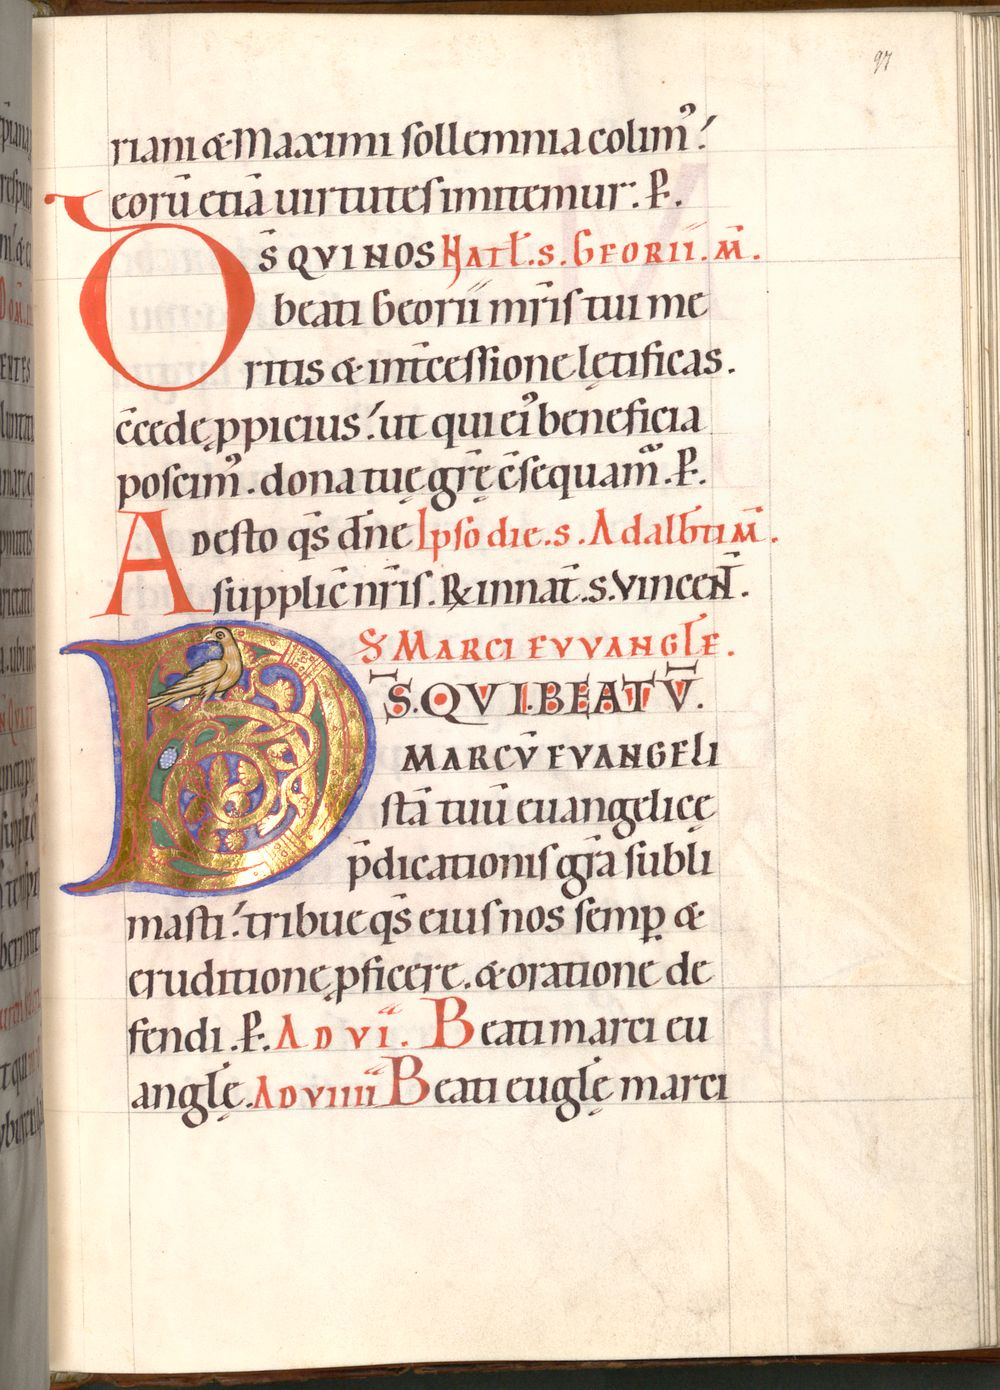 97
riani & Maximi sollemnia colim᷒!
eorū etiā uirtutes imitemur. P̄.
DS̄ QVI NOS NATL̄. S. GEORII. M̄.
beati Georii mr̄is tui me
ritis & int̄cessione lętificas.
c̄cede ꝓpicius! ut qui ei᷒ beneficia
poscim᷒. dona tuę gr̄ę c̄sequam᷑. P̄.
Adesto qs̄ dn̄e Ipso die. s. Adalb̄ti M̄.
supplic̄ nr̄is. R̄ in nat̄. s. Vincent̄.
S MARCI EVVANGLE.
DS̄. QVI. BEATV̄.
MARCV̄ EVANGELI
stā tuū euangelicę
p̄dicationis gr̄a subli
masti! tribue qs̄ eius nos semꝑ &
eruditione ꝓficere. & oratione de
fendi. P̄. AD VI. Beati marci eu
anglę. AD VIIII Beati euglę marci